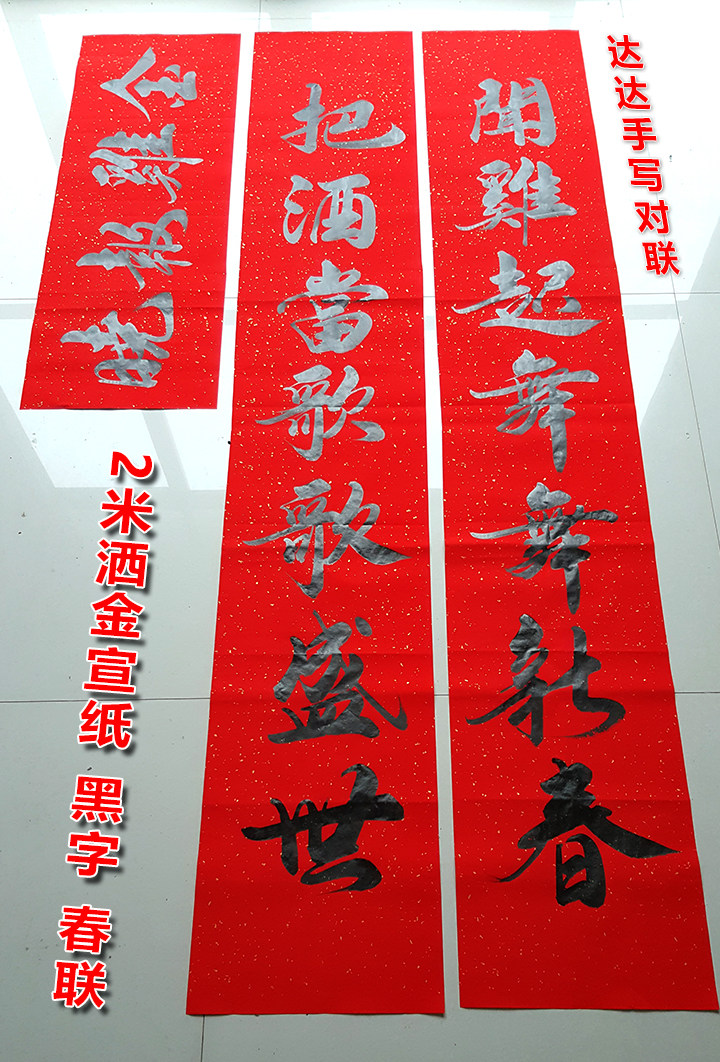 达达手写对联
聞雞起舞舞新春
把酒當歌歌盛世
金雞報曉
2米洒金宣纸 黑字 春联